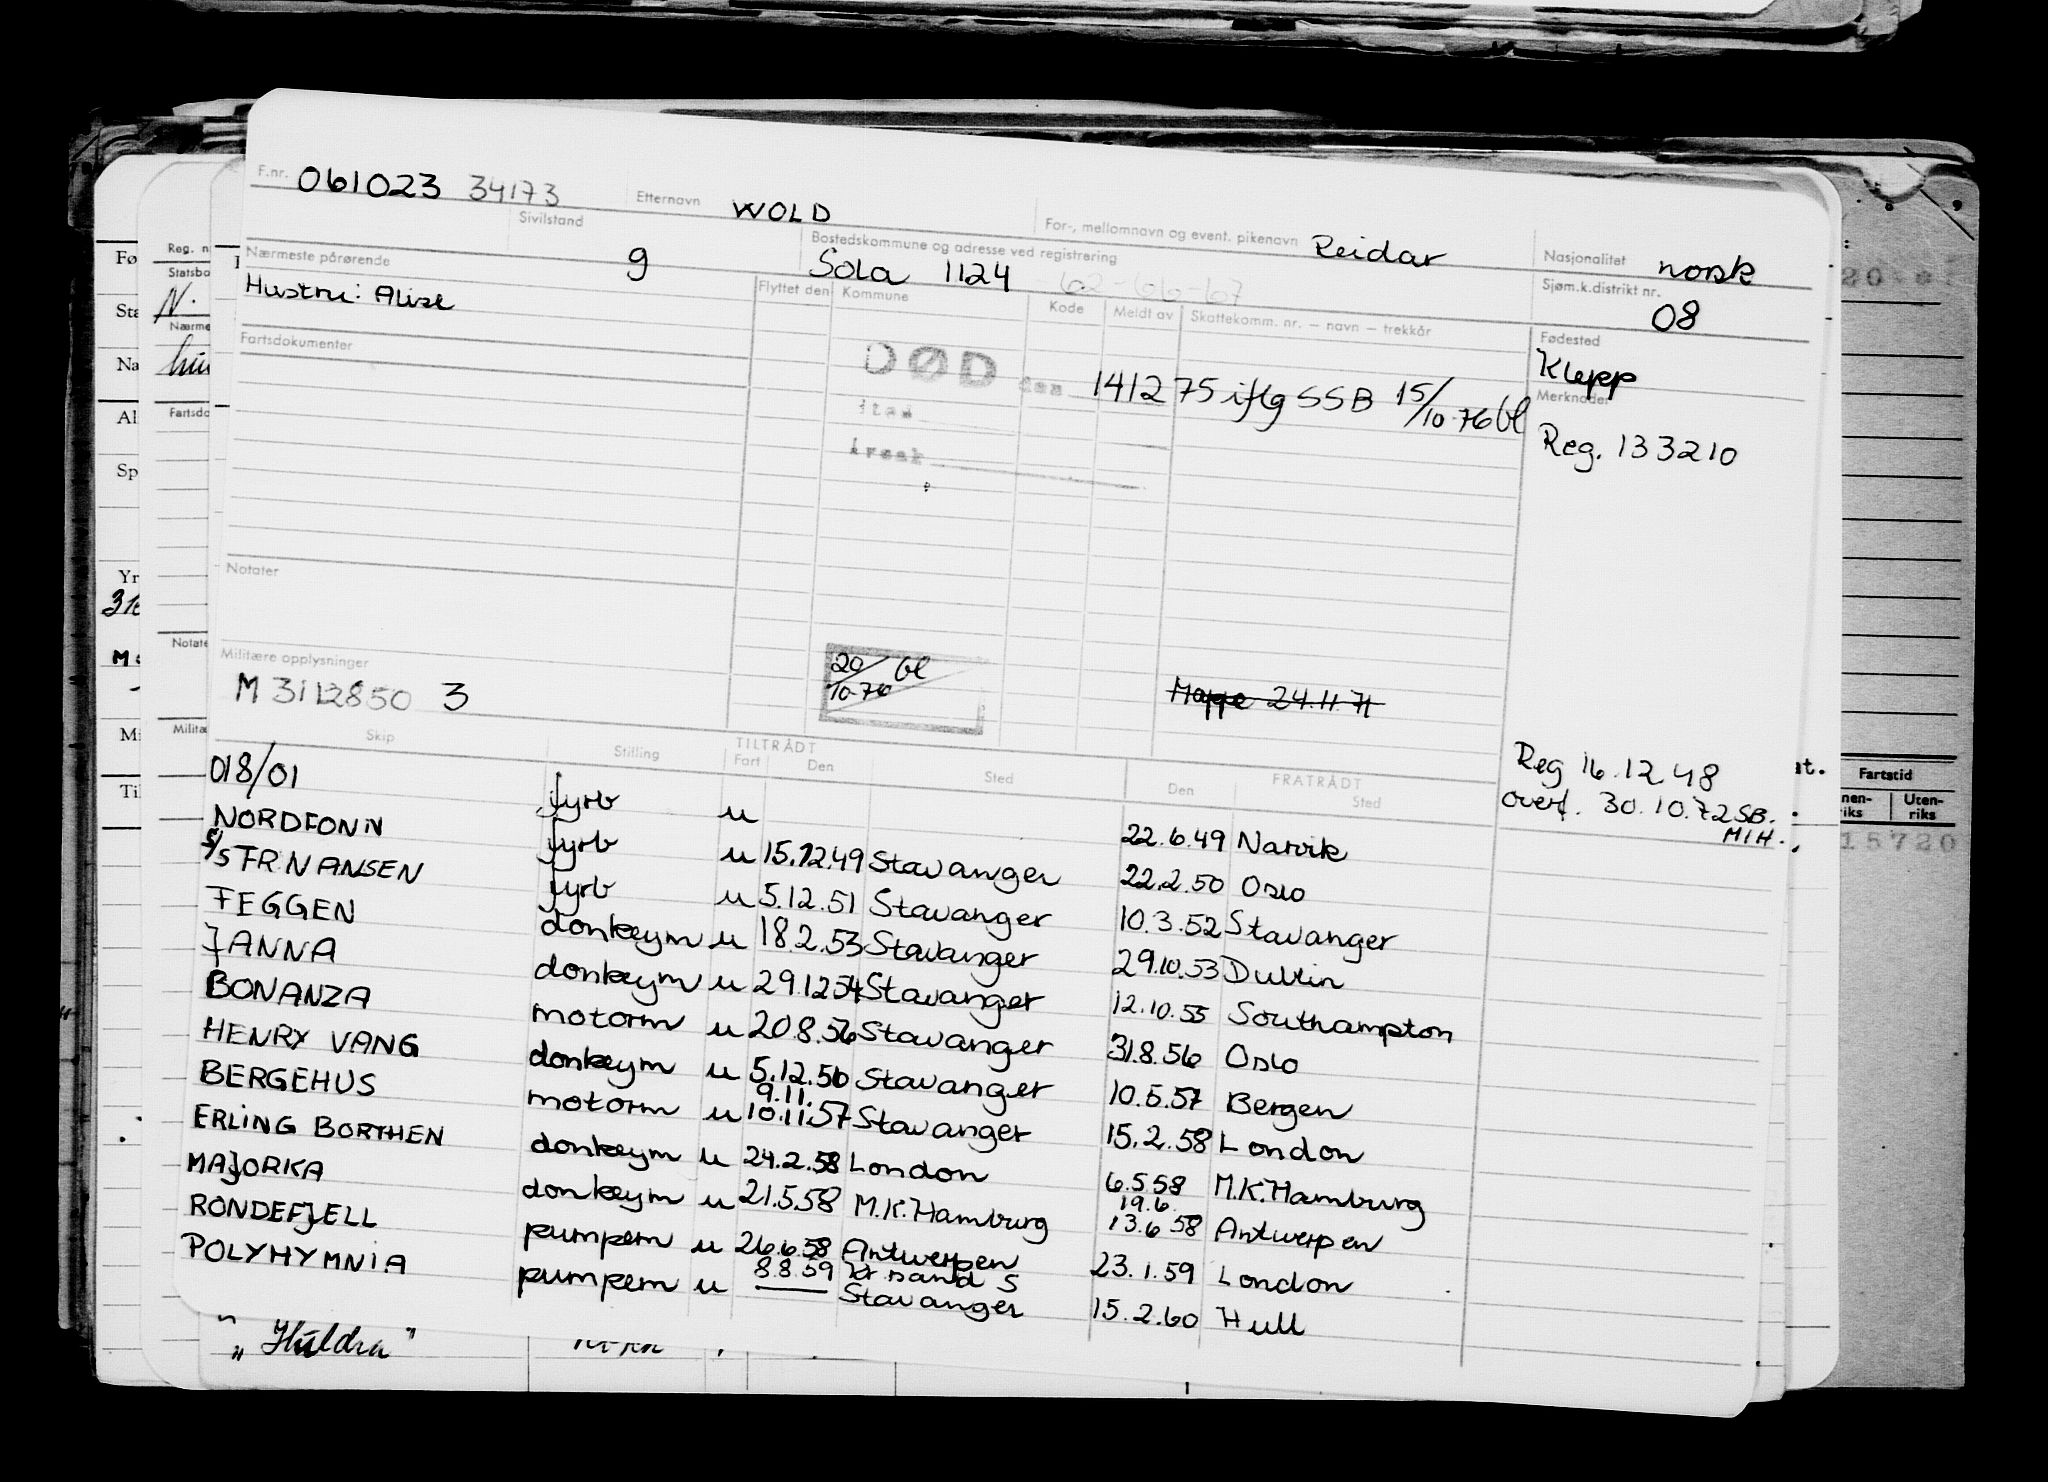 F.nr. 061023 34173 Etternavn WOLD For-, mellomnavn og event. pikenavn Reidar Nasjonalitet norsk
Sivilstand g Bostedskommune og adresse ved registrering Sola 1124 62-66-67 Sjøm.k.distrikt nr. 08
Nærmeste pårørende Flyttet den Kommune Kode Meldt av Skattekomm. nr. – navn – trekkår Fødested
Hustru: Alise Klepp
Fartsdokumenter DØD den 141275 iflg SSB 15/10-76 bl Merknader
sted
årsak
Reg. 133210
Notater
Militære opplysninger
M 3112850 3
20/10-76 bl
Mappe 24.11.71
Reg 16.12.48
overf. 30.10.72 SB.
MIH.
Skip Stilling TILTRÅDT Fart Den Sted FRATRÅDT Den Sted
018/01 fyrb u 22.6.49 Narvik
NORDFONN fyrb u 15.12.49 Stavanger 22.2.50 Oslo
S/S FR.NANSEN fyrb u 5.12.51 Stavanger 10.3.52 Stavanger
FEGGEN donkeym u 18.2.53 Stavanger 29.10.53 Dublin
JANNA donkeym u 29.12.54 Stavanger 12.10.55 Southampton
BONANZA motorm u 20.8.56 Stavanger 31.8.56 Oslo
HENRY VANG donkeym u 5.12.56 Stavanger 10.5.57 Bergen
BERGEHUS motorm u 9.11. 10.11.57 Stavanger 15.2.58 London
ERLING BORTHEN donkeym u 24.2.58 London 6.5.58 M.K.Hamburg
MAJORKA donkeym u 21.5.58 M.K.Hamburg 19.6. 13.6.58 Antwerpen
RONDEFJELL pumpem u 26.6.58 Antwerpen 23.1.59 London
POLYHYMNIA pumpem u 8.8.59 Kr.sand S Stavanger 15.2.60 Hull
"Huldra"
Reg. n
Statsbo
N.
Nærme
hus
Fartsdo
Notate
Militæ
Fø
Sta
Na
Al
Sp
Yr
Mi
Til
at.
Fartstid
nen-riks Uten-riks
15720